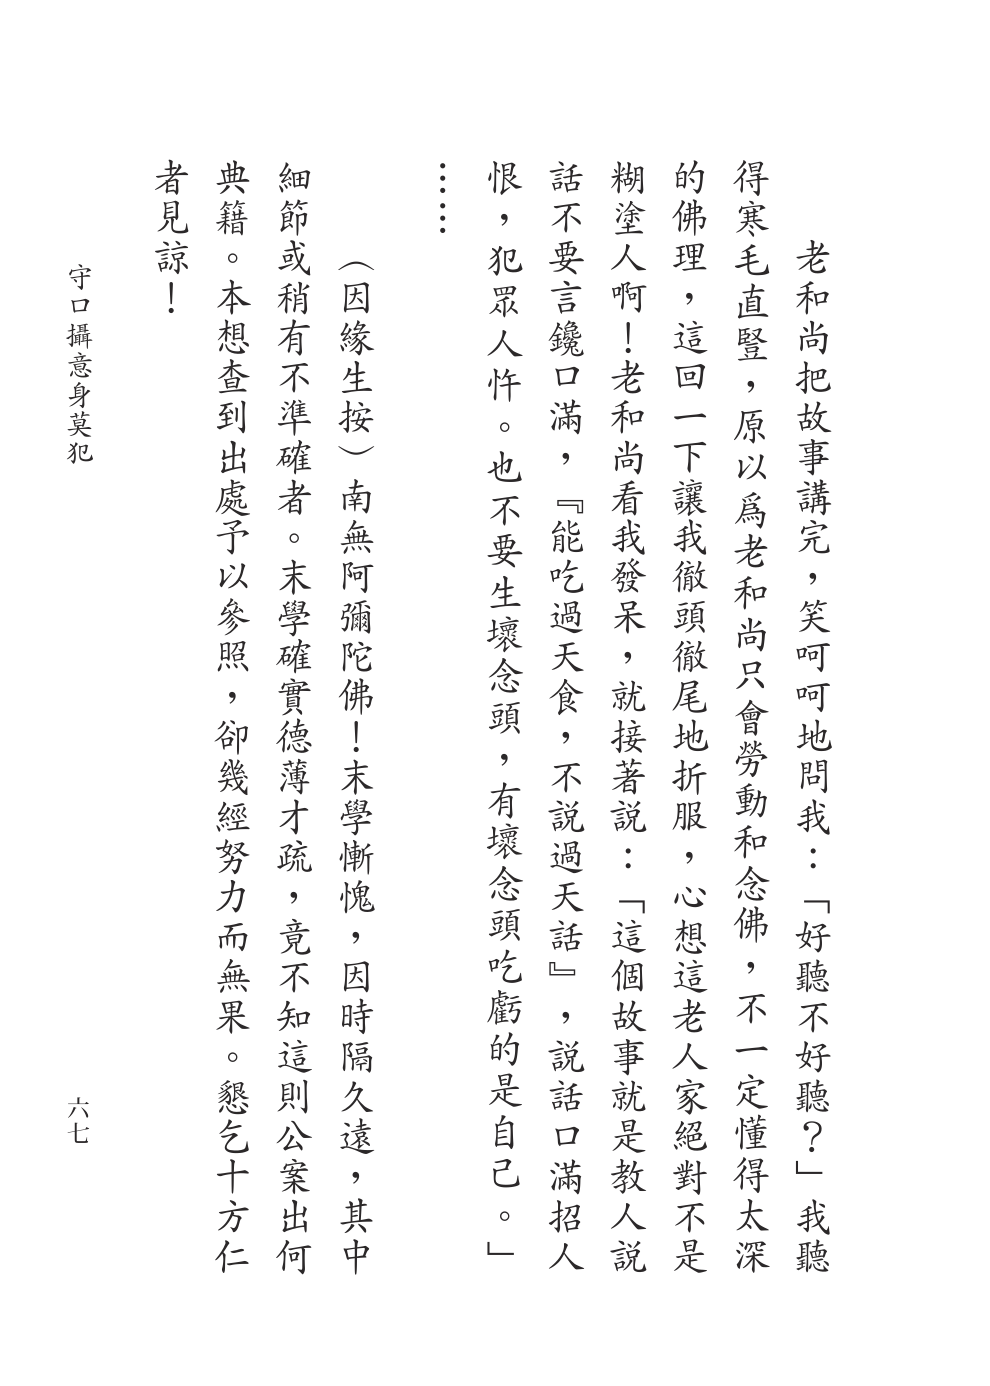 老和尚把故事講完，笑呵呵地問我：「好聽不好聽？」我聽
得寒毛直豎，原以爲老和尚只會勞動和念佛，不一定懂得太深
的佛理，這回一下讓我徹頭徹尾地折服，心想這老人家絕對不是
糊塗人啊！老和尚看我發呆，就接著説：「這個故事就是教人説
話不要言鑱口滿，『能吃過天食，不説過天話』，説話口滿招人
恨，犯眾人忤。也不要生壞念頭，有壞念頭吃虧的是自己。」
……
（因緣生按）南無阿彌陀佛！末學慚愧，因時隔久遠，其中
細節或稍有不準確者。末學確實德薄才疏，竟不知這則公案出何
典籍。本想查到出處予以參照，卻幾經努力而無果。懇乞十方仁
者見諒！
守口攝意身莫犯
六七